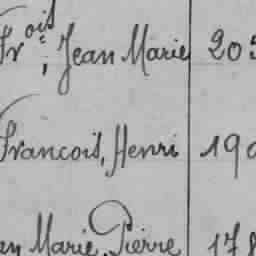 Fr.ois, Jean Marie 20
Francois, Henri 190
Marie, Pierre 178